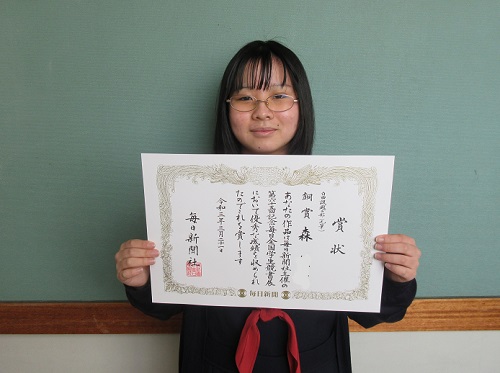 賞状
銅賞 森
あなたの作品は毎日新聞社主催の
第六十回記念毎日全国学生競書展
において優秀な成績を収められ
たのでこれを賞します
令和三年三月
毎日新聞社
毎日新聞